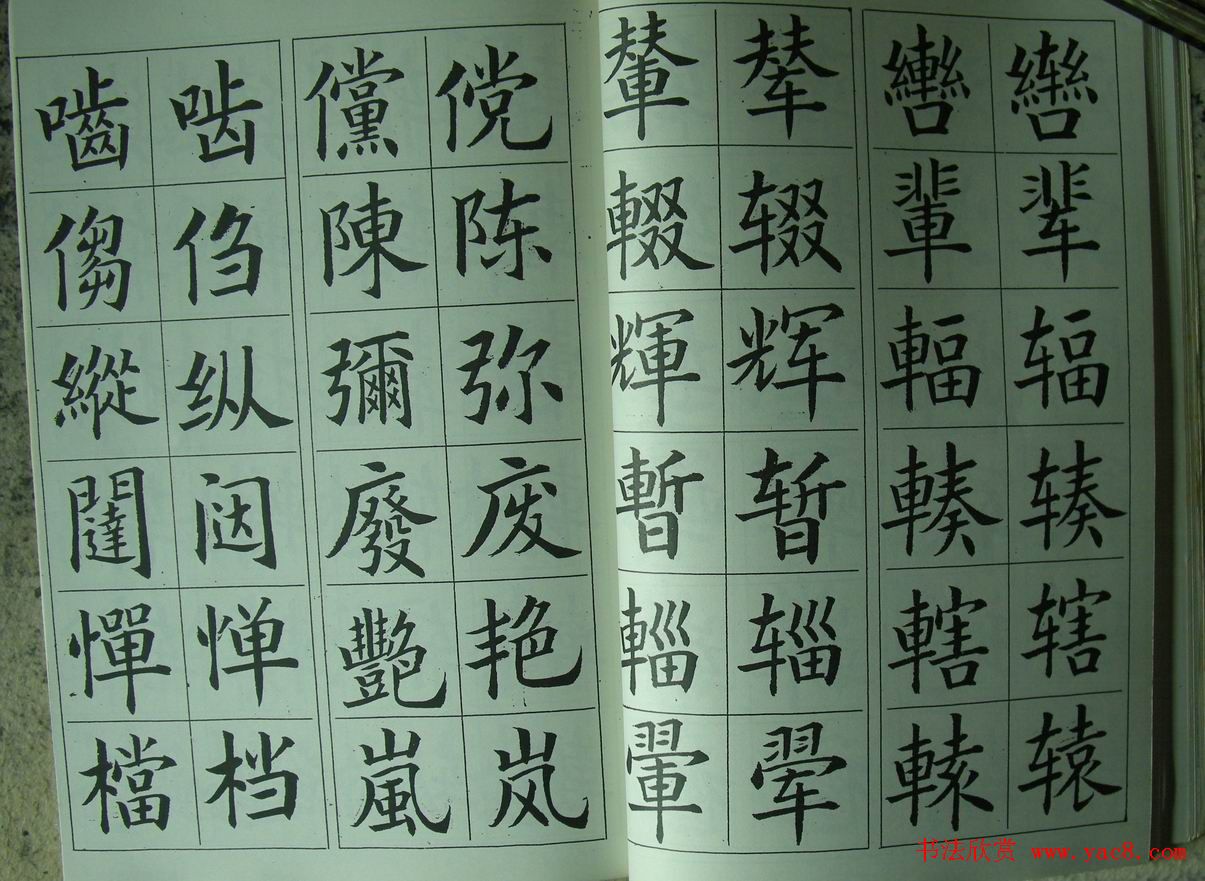 嚙 啮 儻 傥
㑳 㑇 陳 陈
縱 纵 彌 弥
闥 闼 廢 废
憚 惮 艷 艳
檔 档 嵐 岚
輦 辇 轡 辔
輟 辍 輩 辈
輝 辉 輻 辐
暫 暂 輳 辏
輜 辎 轄 辖
翬 翚 轅 辕
书法欣赏 www.yac8.com